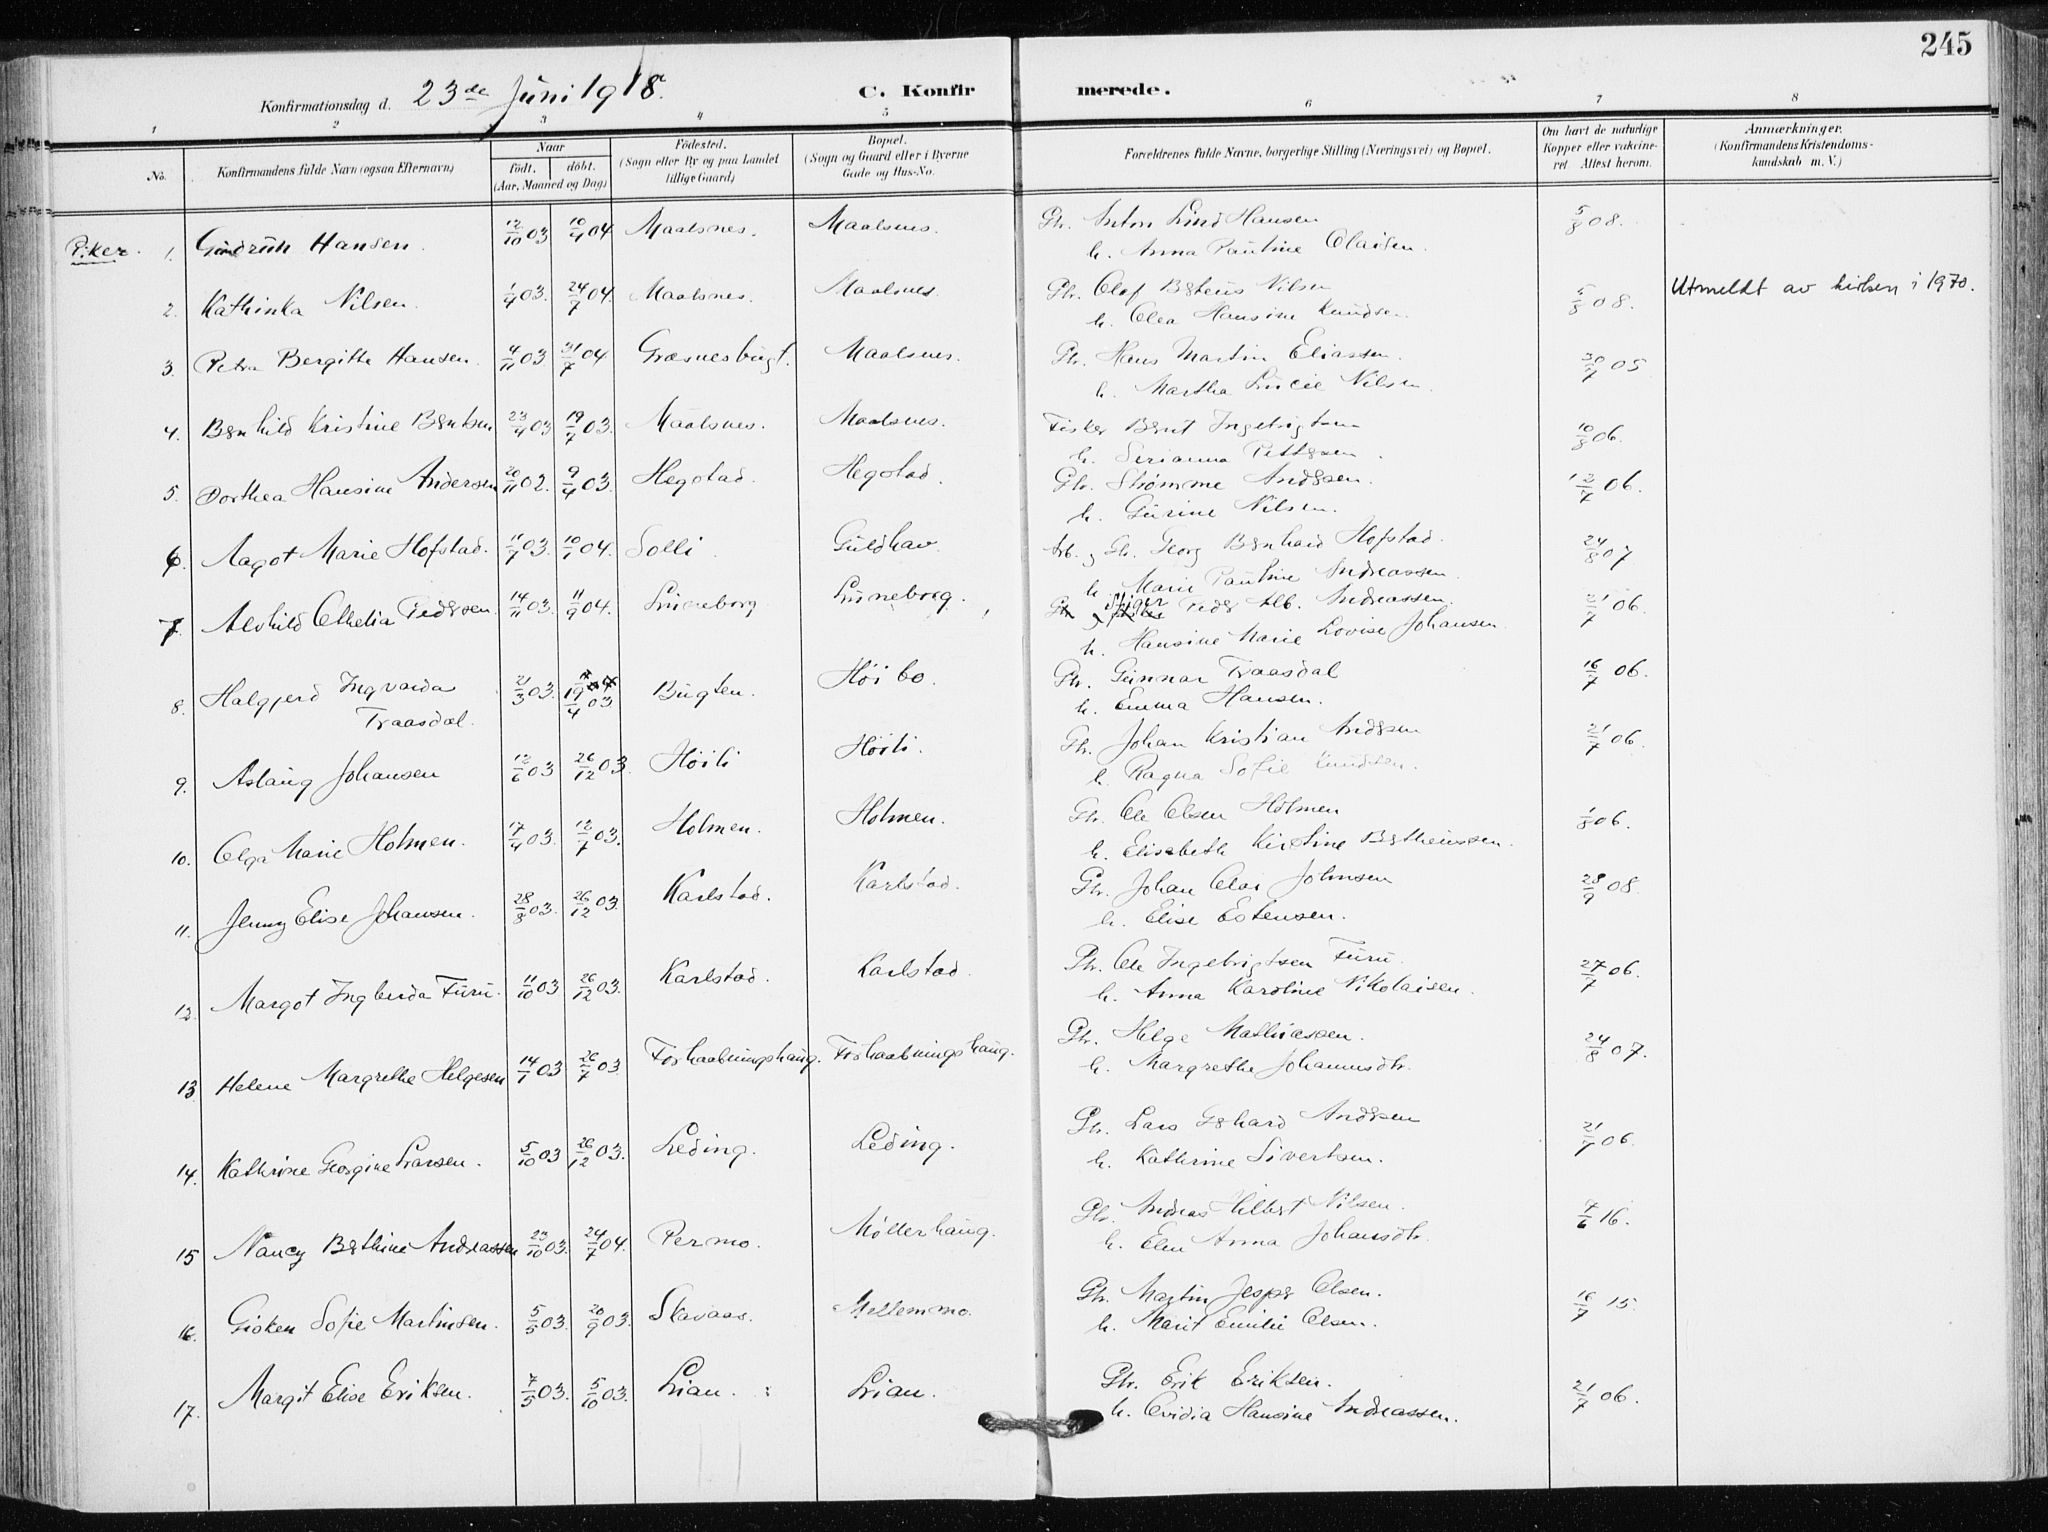 245
Konfirmationsdag d. 23de Juni 1918.
C. Konfirmerede.
1 2 3 4 5 6 7 8
No. Konfirmandens fulde Navn (ogsaa Efternavn) Naar født, døbt. (Aar, Maaned og Dag) Fødested. (Sogn eller By og paa Landet tillige Gaard) Bopæl. (Sogn og Gaard eller i Byerne Gade og Hus-No. Forældrenes fulde Navne, borgerlige Stilling (Næringsvei) og Bopæl. Om havt de naturlige Kopper eller vaccineret Attest herom. Anmærkninger. (Konfirmandens Kristendomskundskab m. V.)
Piker. 1. Gudrun Hansen. 12/10 03 10/4 04 Maalsnes. Maalsnes. Gbr. Anton Lind Hansen 5/8 08.
h. Anna Pauline Olaisen.
2. Kathinka Nilsen. 1/4 03. 24/7 04. Maalsnes. Maalsnes. Gbr. Olaf Berteus Nilsen 5/8 08. Utmeldt av kirken i 1970.
h. Olea Hansine Knudsen
3. Petra Bergithe Hansen. 4/11 03 31/7 04 Græsnesbugt. Maalsnes. Gbr. Hans Martin Eliassen. 30/7 05
h. Martha Lucie Nilsen.
4. Bernhild Kristine Berntsen 23/4 03 19/7 03. Maalsnes. Maalsnes. Fisker Bernt Ingebrigtsen 10/8 06.
h. Serianna Pettersen.
5. Dorthea Hansine Andersen 20/11 02. 9/4 03. Hegstad. Hegstad. Gbr. Strømme Andersen. 12/7 06.
h. Gurine Nilsen.
6. Aagot Marie Hofstad. 11/7 03. 10/1 04. Solli. Guldhav Arb. og Gbr. Georg Bernhard Hofstad. 24/8 07
h. Marie Pauline Andreassen.
7. Alvhild Othelia Pedersen. 14/11 03. 11/9 04. Luneborg Luneborg. Stiger Peder Alb. Andreassen 21/7 06.
h. Hansine Marie Lovise Johansen
8. Halgjerd Ingvarda 21/3 03. 19/4 03 Bugten. Høibo. Gbr. Gunnar Traasdal 16/7 06.
Traasdal. h. Emma Hansen.
9. Aslaug Johansen 12/6 03 26/12 03. Høili Høili Gbr. Johan Kristian Andersen 21/7 06.
h. Ragna Sofie Knudsen.
10. Olga Marie Holmen. 17/4 03. 12/7 03. Holmen. Holmen. Gbr. Ole Olsen Holmen 1/8 06.
h. Elisabeth Kirstine Bertheussen.
11. Jenny Elise Johansen. 28/8 03. 26/12 03. Karlstad. Karlstad. Gbr. Johan Olai Johnsen 28/9 08.
h. Elise Estensen.
12. Margot Ingberda Furu. 11/10 03 26/12 03. Karlstad. Karlstad. Gbr. Ole Ingebrigtsen Furu. 27/7 06.
h. Anna Karoline Nikolaisen.
13 Helene Margrethe Helgesen 14/1 03 26/7 03 Forhaabningshaug. Forhaabningshaug. Gbr. Helge Mathiassen. 24/8 07.
h. Margrethe Johannesdtr.
14. Kathrine Georgine Larsen. 5/10 03 26/12 03. Leding. Leding. Gbr. Lars Gerhard Andersen 21/7 06.
h. Kathrine Sivertsen.
15 Nancy Berthine Andreassen 23/10 03. 24/7 04. Permo. Møllerhaug. Gbr. Andreas Hilbert Nilsen. 7/6 16.
h. Elen Anna Johansdtr.
16. Gisken Sofie Martinsen. 5/5 03. 20/9 03. Skavaas. Mellemmo. Gbr. Martin Jesper Olsen. 16/7 15.
h. Marit Emilie Olsen.
17. Margit Elise Eriksen. 7/5 03. 5/10 03. Lian. Lian. Gbr. Erik Eriksen. 21/7 06.
h. Ovidia Hansine Andreassen.